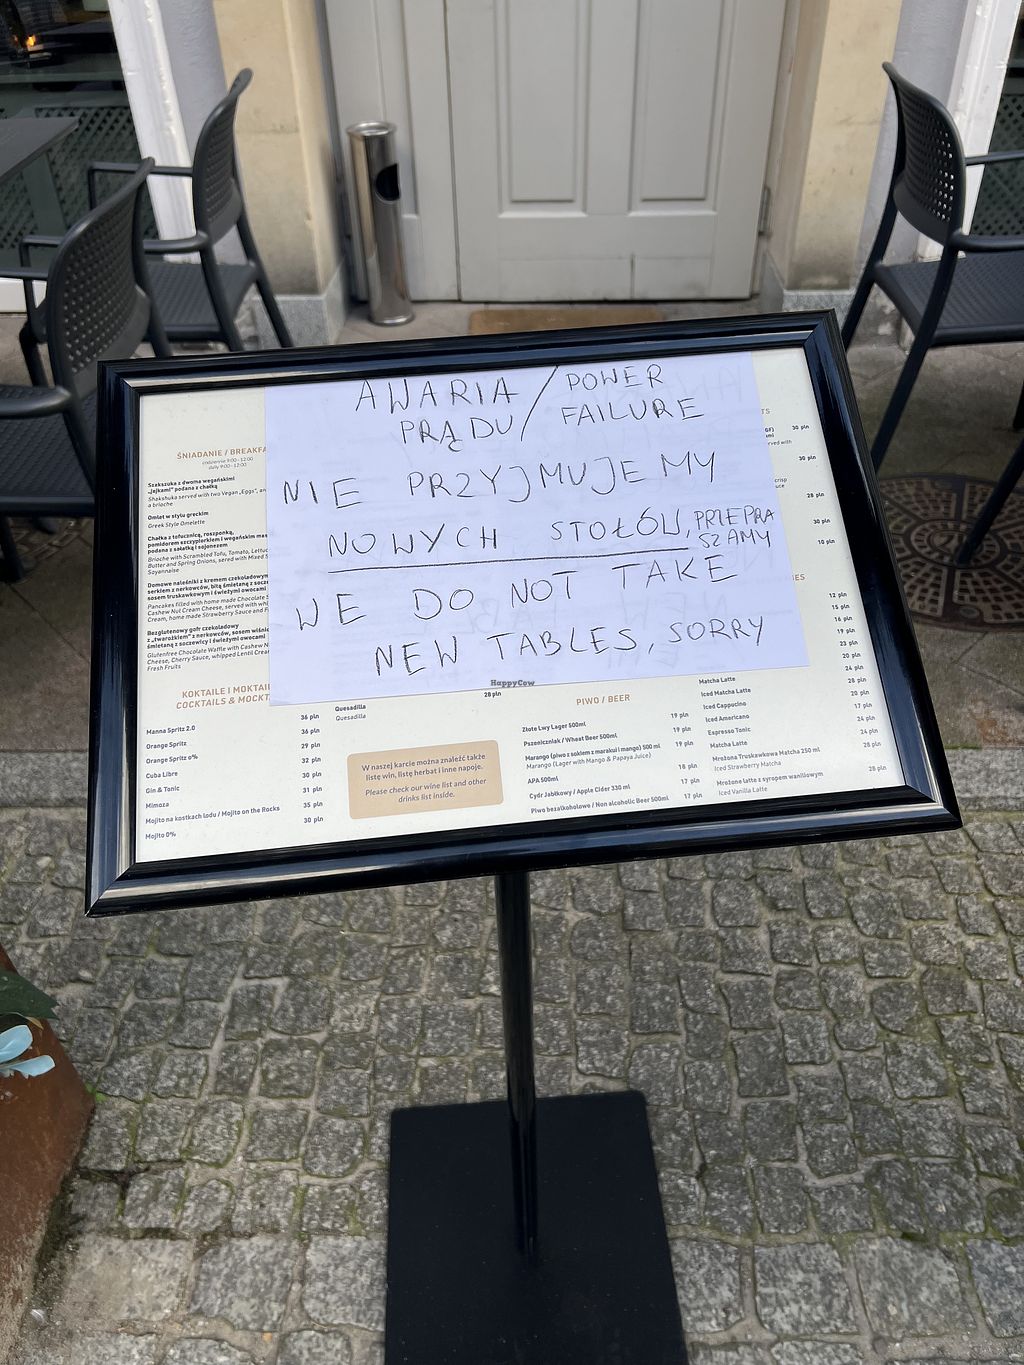 AWARIA / POWER
PRĄDU / FAILURE
NIE PRZYJMUJEMY
NOWYCH STOŁÓW, PRZEPRA
SZAMY
WE DO NOT TAKE
NEW TABLES, SORRY
HappyCow
ŚNIADANIE / BREAKFA
codziennie 9:00 - 12:00
daily 9:00 - 12:00
Szakszuka z dwoma wegańskimi
„jejkami" podana z chałką
Shakshuka served with two Vegan „Eggs", an
a brioche
Omlet w stylu greckim
Greek Style Omelette
Chałka z tofucznicą, roszponką,
pomidorem szczypiorkiem i wegańskim mas
podana z sałatką i sojonezem
Brioche with Scrambled Tofu, Tomato, Lettuc
Butter and Spring Onions, sered with Mixed
Soyannaise
Domowe naleśniki z kremem czekoladowym
serkiem z nerkowców, bitą śmietaną z soc
sosem truskawkowym i świeżymi owocami
Pancakes filled with home made Chocolate
Cashew Nut Cream Cheese, served with whi
Cream, home made Strawberry Sauce and F
Bezglutenowy gofr czekoladowy
z „twarożkiem" z nerkowców, sosem wiśnio
śmietaną z soczewicy i świeżymi owocami
Glutenfree Chocolate Waffle with Cashew N
Cheese, Cherry Sauce, whipped Lentil Crea
Fresh Fruits
KOKTAILE I MOKTAI
COCKTAILS & MOCKT
Manna Spritz 2.0 36 pln
Orange Spritz 36 pln
Orange Spritz 0% 29 pln
Cuba Libre 32 pln
Gin & Tonic 30 pln
Mimoza 31 pln
Mojito na kostkach lodu / Mojito on the Rocks 35 pln
Mojito 0% 30 pln
Quesadilla 28 pln
Quesadilla
W naszej karcie można znaleźć także
listę win, listę herbat i inne napoje.
Please check our wine list and other
drinks list inside.
PIWO / BEER
Złote Lwy Lager 500ml 19 pln
Pszeniczniak / Wheat Beer 500ml 19 pln
Marango (piwo z sokiem z marakui i mango) 500 ml 19 pln
Marango (Lager with Mango & Papaya Juice)
APA 500ml 18 pln
Cydr Jabłkowy / Apple Cider 330 ml 17 pln
Piwo bezalkoholowe / Non alcoholic Beer 500ml 17 pln
TS
30 pln
rved with
30 pln
28 pln
30 pln
10 pln
IES
12 pln
15 pln
16 pln
19 pln
23 pln
20 pln
Matcha Latte 24 pln
Iced Matcha Latte 28 pln
Iced Cappucino 20 pln
Iced Americano 17 pln
Espresso Tonic 24 pln
Matcha Latte 24 pln
Mrożona Truskawkowa Matcha 250 ml 28 pln
Iced Strawberry Matcha
Mrożone latte z syropem waniliowym 28 pln
Iced Vanilla Latte